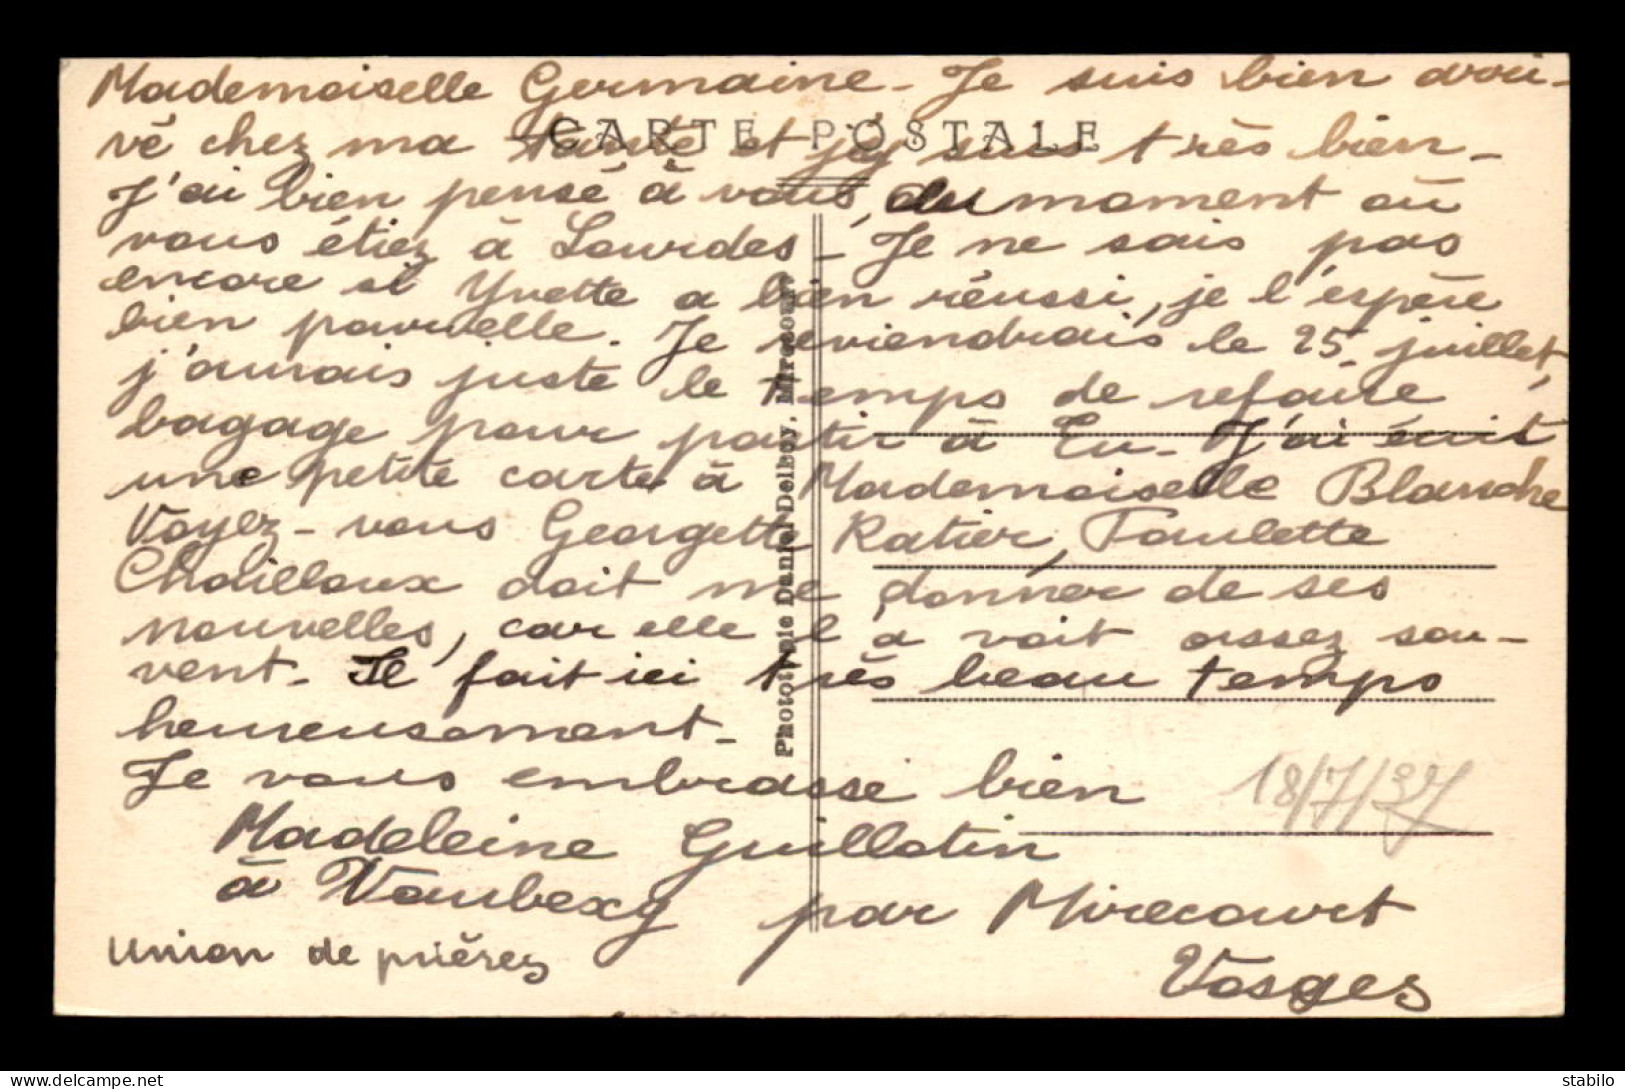 Mademoiselle Germaine - Je suis bien arri-
vé chez ma tante et j'y suis très bien -
CARTE POSTALE
J'ai bien pensé à vous, du moment où
vous étiez à Lourdes - Je ne sais pas
encore si Yvette a bien réussi, je l'espère
bien pour elle. Je reviendrais le 25 juillet,
j'aurais juste le temps de refaire
bagage pour partir à Eu - J'ai écrit
une petite carte à Mademoiselle Blanche
Voyez-vous Georgette Ratier, Paulette
Chailloux doit me donner de ses
nouvelles, car elle l a voit assez sou-
vent - Il fait ici très beau temps
heureusement -
Je vous embrasse bien
18/7/37
Madeleine Guillotin
à Vaubexy par Mirecourt
Vosges
union de prières
Phototypie Daniel Delboy, Mirecourt